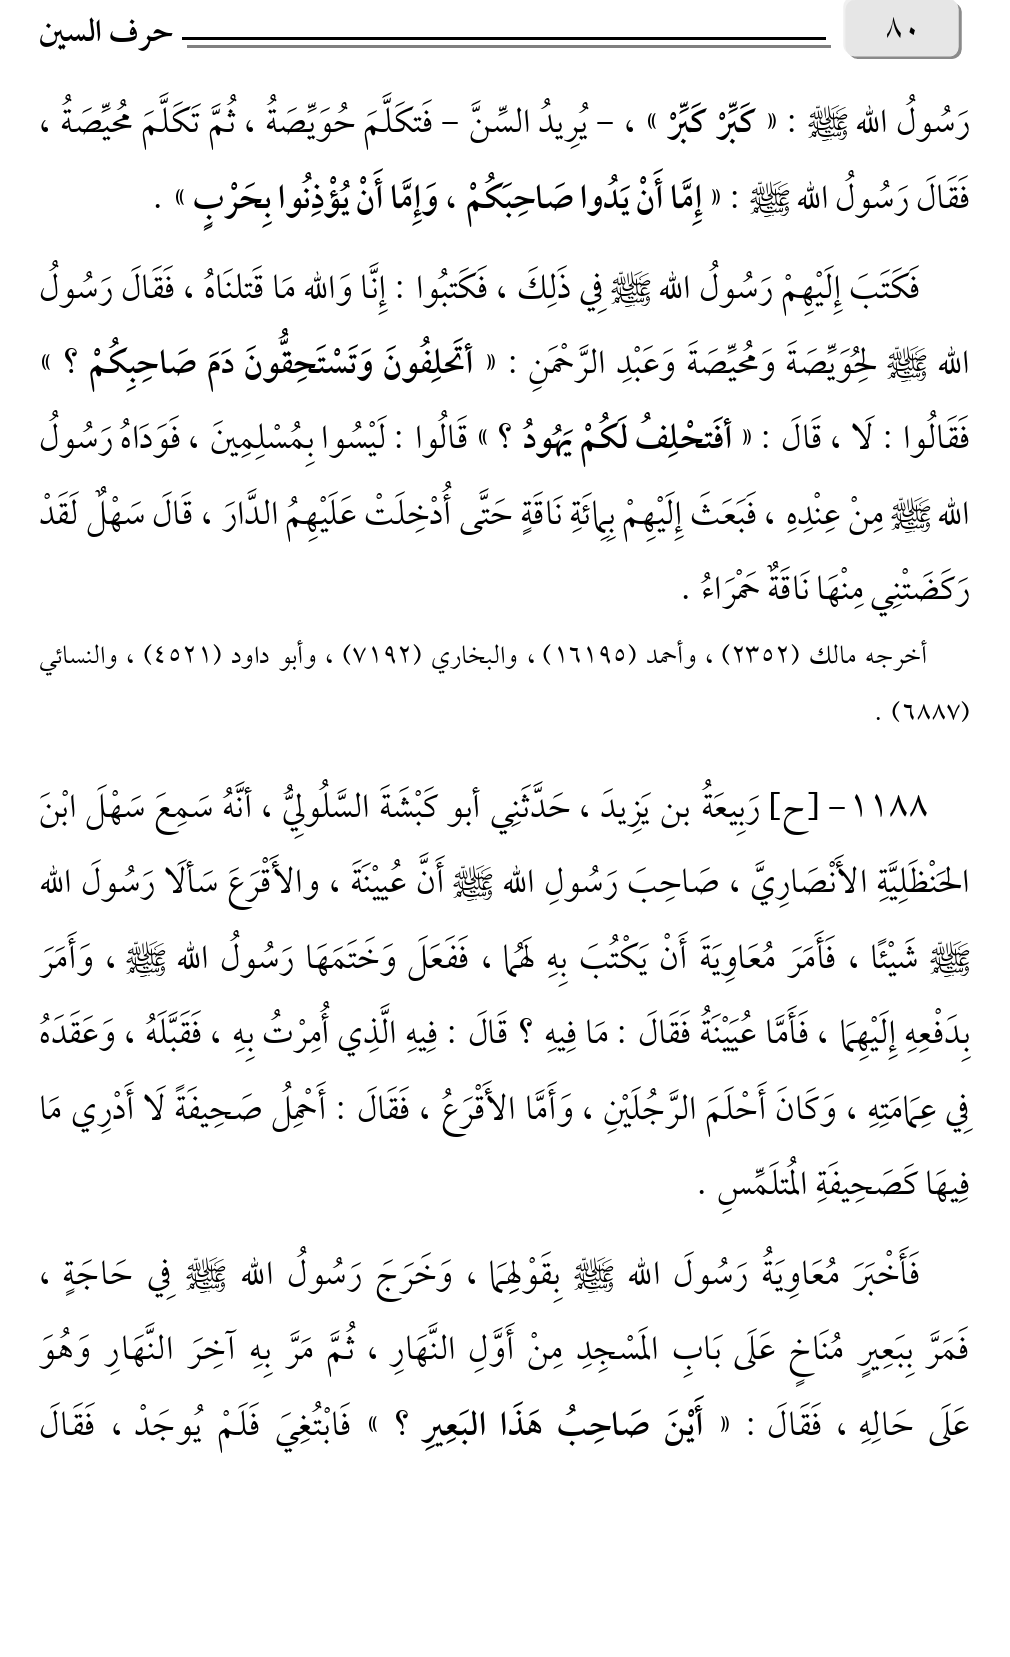 ٨٠ حرف السين
رَسُولُ الله ﷺ : « كَبِّرْ كَبِّرْ » ، – يُرِيدُ السِّنَّ – فَتكَلَّمَ حُوَيِّصَةُ ، ثُمَّ تَكَلَّمَ مُحيِّصَةُ ،
فَقَالَ رَسُولُ الله ﷺ : « إِمَّا أَنْ يَدُوا صَاحِبَكُمْ ، وَإِمَّا أَنْ يُؤْذِنُوا بِحَرْبٍ » .
فَكَتَبَ إِلَيْهِمْ رَسُولُ الله ﷺ فِي ذَلِكَ ، فَكَتبُوا : إِنَّا وَالله مَا قَتلنَاهُ ، فَقَالَ رَسُولُ
الله ﷺ لِحُوَيِّصَةَ وَمُحَيِّصَةَ وَعَبْدِ الرَّحْمَنِ : « أتَحلِفُونَ وَتَسْتَحِقُّونَ دَمَ صَاحِبِكُمْ ؟ »
فَقَالُوا : لَا ، قَالَ : « أفَتحْلِفُ لَكُمْ يَهُودُ ؟ » قَالُوا : لَيْسُوا بِمُسْلِمِينَ ، فَوَدَاهُ رَسُولُ
الله ﷺ مِنْ عِنْدِهِ ، فَبَعَثَ إِلَيْهِمْ بِمِائَةِ نَاقَةٍ حَتَّى أُدْخِلَتْ عَلَيْهِمُ الدَّارَ ، قَالَ سَهْلٌ لَقَدْ
رَكَضَتْنِي مِنْهَا نَاقَةٌ حَمْرَاءُ .
أخرجه مالك (٢٣٥٢) ، وأحمد (١٦١٩٥) ، والبخاري (٧١٩٢) ، وأبو داود (٤٥٢١) ، والنسائي
(٦٨٨٧) .
١١٨٨– [ح] رَبِيعَةُ بن يَزِيدَ ، حَدَّثَنِي أبو كَبْشَةَ السَّلُولِيُّ ، أنَّهُ سَمِعَ سَهْلَ ابْنَ
الحَنْظَلِيَّةِ الأَنْصَارِيَّ ، صَاحِبَ رَسُولِ الله ﷺ أَنَّ عُييْنَةَ ، والأَقْرَعَ سَألَا رَسُولَ الله
ﷺ شَيْئًا ، فَأَمَرَ مُعَاوِيَةَ أَنْ يَكْتُبَ بِهِ لَهُمَا ، فَفَعَلَ وَخَتَمَهَا رَسُولُ الله ﷺ ، وَأَمَرَ
بِدَفْعِهِ إِلَيْهِمَا ، فَأَمَّا عُيَيْنَةُ فَقَالَ : مَا فِيهِ ؟ قَالَ : فِيهِ الَّذِي أُمِرْتُ بِهِ ، فَقَبَّلَهُ ، وَعَقَدَهُ
فِي عِمَامَتِهِ ، وَكَانَ أَحْلَمَ الرَّجُلَيْنِ ، وَأَمَّا الأَقْرَعُ ، فَقَالَ : أَحْمِلُ صَحِيفَةً لَا أَدْرِي مَا
فِيهَا كَصَحِيفَةِ المُتلَمِّسِ .
فَأَخْبَرَ مُعَاوِيَةُ رَسُولَ الله ﷺ بِقَوْلِهِمَا ، وَخَرَجَ رَسُولُ الله ﷺ فِي حَاجَةٍ ،
فَمَرَّ بِبَعِيرٍ مُنَاخٍ عَلَى بَابِ المَسْجِدِ مِنْ أَوَّلِ النَّهَارِ ، ثُمَّ مَرَّ بِهِ آخِرَ النَّهَارِ وَهُوَ
عَلَى حَالِهِ ، فَقَالَ : « أَيْنَ صَاحِبُ هَذَا البَعِيرِ ؟ » فَابْتُغِيَ فَلَمْ يُوجَدْ ، فَقَالَ